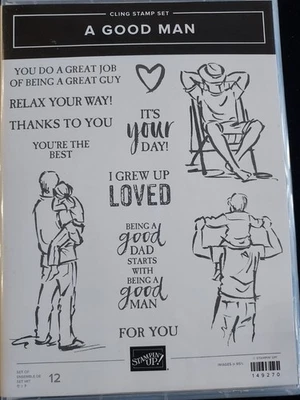 CLING STAMP SET
A GOOD MAN
YOU DO A GREAT JOB
OF BEING A GREAT GUY
RELAX YOUR WAY!
THANKS TO YOU
YOU'RE THE
BEST
IT'S
your
DAY!
I GREW UP
LOVED
BEING A
good
DAD
STARTS
WITH
BEING A
good
MAN
FOR YOU
STAMPIN' UP!
12
149270